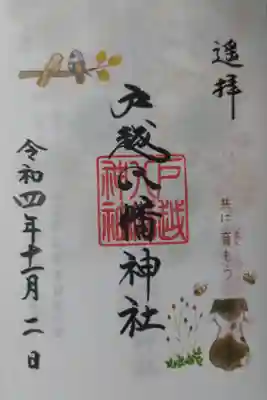 遥拝
共に育もう
戸越八幡神社
戸越
八幡
神社
令和四年十二月二日